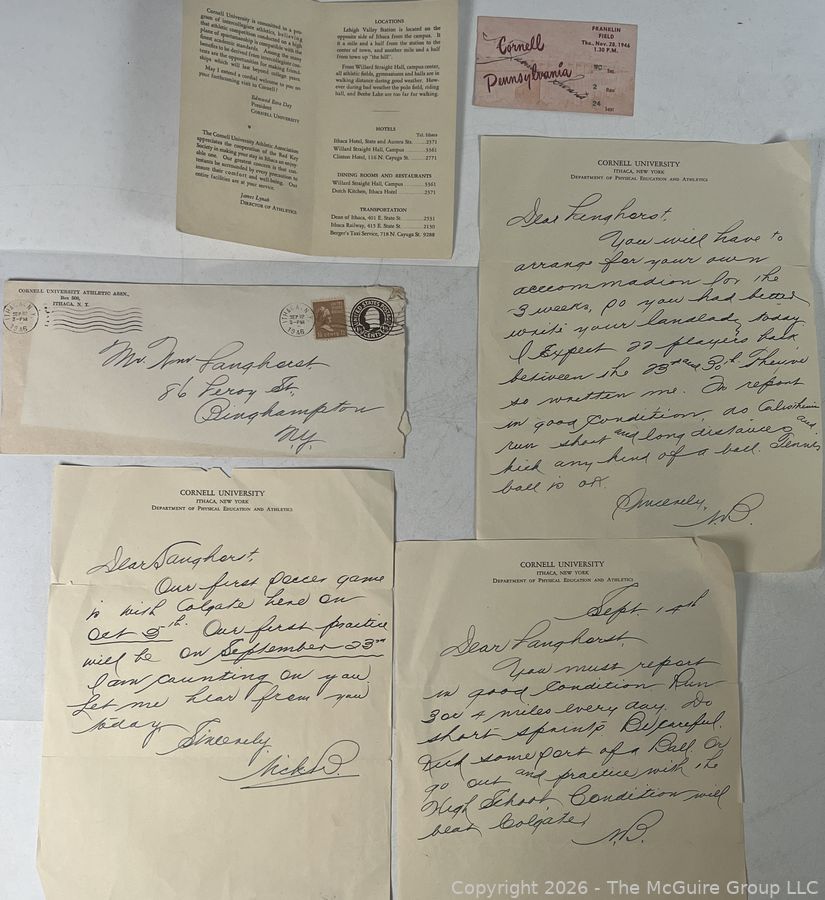 Cornell University is committed to a pro-
gram of intercollegiate athletics, believing
that athletic competition conducted on a high
plane of sportsmanship is compatible with the
finest academic standards. Among the many
benefits to be derived from intercollegiate con-
tests are the opportunities for making friend-
ships which will last beyond college years.
May I extend a cordial welcome to you on
your forthcoming visit to Cornell?
Edmund Ezra Day
President
CORNELL UNIVERSITY
The Cornell University Athletic Association
appreciates the cooperation of the Red Key
Society in making your stay in Ithaca an enjoy-
able one. Our greatest concern is that con-
testants be surrounded by every precaution to
insure their comfort and well-being. Our
entire facilities are at your service.
James Lynah
DIRECTOR OF ATHLETICS
LOCATIONS
Lehigh Valley Station is located on the
opposite side of Ithaca from the campus. It
is a mile and a half from the station to the
center of town, and another mile and a half
from town up "the hill".
From Willard Straight Hall, campus center,
all athletic fields, gymnasiums and halls are in
walking distance during good weather. How-
ever during bad weather the polo field, riding
hall, and Beebe Lake are too far for walking.
HOTELS
Tel. Ithaca
Ithaca Hotel, State and Aurora Sts. 2371
Willard Straight Hall, Campus 3361
Clinton Hotel, 116 N. Cayuga St. 2771
DINING ROOMS AND RESTAURANTS
Willard Straight Hall, Campus 3361
Dutch Kitchen, Ithaca Hotel 2371
TRANSPORTATION
Dean of Ithaca, 401 E. State St. 2531
Ithaca Railway, 415 E. State St. 2150
Berger's Taxi Service, 718 N. Cayuga St. 9288
Cornell
Pennsylvania
FRANKLIN
FIELD
Thu., Nov. 28, 1946
1.30 P.M.
NC Sec.
2 Row
24 Seat
CORNELL UNIVERSITY
ITHACA, NEW YORK
DEPARTMENT OF PHYSICAL EDUCATION AND ATHLETICS
Dear Langhorst,
You will have to
arrange for your own
accommodation for the
3 weeks, so you had better
write your landlady today
I Expect 22 players back
between the 23rd and 30th They've
so written me. To report
in good Condition, do Calisthenics
run short and long distances and
kick any kind of a ball. Tennis
ball is ok.
Sincerely,
N.B.
CORNELL UNIVERSITY ATHLETIC ASSN.,
Box 508,
ITHACA, N. Y.
ITHACA, N.Y.
SEP 12
3-PM
1946
ITHACA, N.Y.
SEP 12
3-PM
1946
UNITED STATES POSTAGE
Mr. Wm Langhorst
86 Leroy St,
Binghampton
N.Y.
CORNELL UNIVERSITY
ITHACA, NEW YORK
DEPARTMENT OF PHYSICAL EDUCATION AND ATHLETICS
Dear Langhorst,
Our first soccer game
is with Colgate here on
Oct 5th. Our first practice
will be on September 23rd
I am counting on you
Let me hear from you
today,
Sincerely
Nicks B.
CORNELL UNIVERSITY
ITHACA, NEW YORK
DEPARTMENT OF PHYSICAL EDUCATION AND ATHLETICS
Sept. 14th
Dear Langhorst,
You must report
in good condition Run
3 or 4 miles every day. Do
short sprints Be careful.
Kick some sort of a Ball. Or
go out and practice with the
High School Condition will
beat Colgate,
N.B.
Copyright 2026 - The McGuire Group LLC